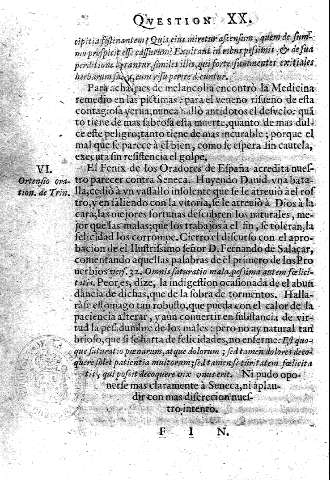 QVESTION XX.
cipitia festinantem? Quis eius miretur ascensum, quem de sum-
mo prospicit esse casurum? Exultant in rebus pessimis, & de sua
perditione
herbarum
Para achaques de melancolia encontrò la Medicina
remedio en las pictimas: para el veneno risueño de esta
contagiosa yerua, nunca hallò antidotos el desvelo: quā
to tiene de mas sabrosa esta muerte, quanto de mas dul
ce este peligro; tanto tiene de mas incurable; porque el
mal que se parece al bien, como se espera sin cautela,
executa sin resistencia el golpe.
VI.
Ortensio ora-
tion. de Trin.
El Fenix de los Oradores de España acredita nues-
tro parecer contra Seneca. Huyendo Dauid vna bata
lla, cediò à vn vassallo insolente que se le atreuiò al ros
tro, y en saliendo con la vitoria, se le atreuiò à Dios à la
cara, las mejores fortunas descubren los naturales, me-
jor que las malas; que los trabajos al fin, se toleran, la
felicidad los corrompe. Cierro el discurso con la apro-
bacion de el Ilustrissimo señor D. Fernando de Salaçar,
comentando aquellas palabras de el primero de los Pro
uerbios vers. 32. Omnis saturatio mala, pessima autem fœlici-
tatis. Peor es, dize, la indigestion ocasionada de el abun
dancia de dichas, que de la sobra de tormentos. Halla-
rase estomago tan robusto, que pueda con el calor de la
paciencia alterar, y aun conuertir en substancia de vir-
tud la pesadumbre de los males; pero no ay natural tan
brioso, que si se harta de felicidades, no enferme: Est quo-
que saturatio pœnarum, atque dolorum; sed tamen dolores deco-
quere solet patientia multorum: sed tamen
qui possit decoquere vix inuenerit. Ni pudo opo-
nerse mas claramente à Seneca, ni aplau-
dir con mas discrecion nues-
tro intento.
F I N.